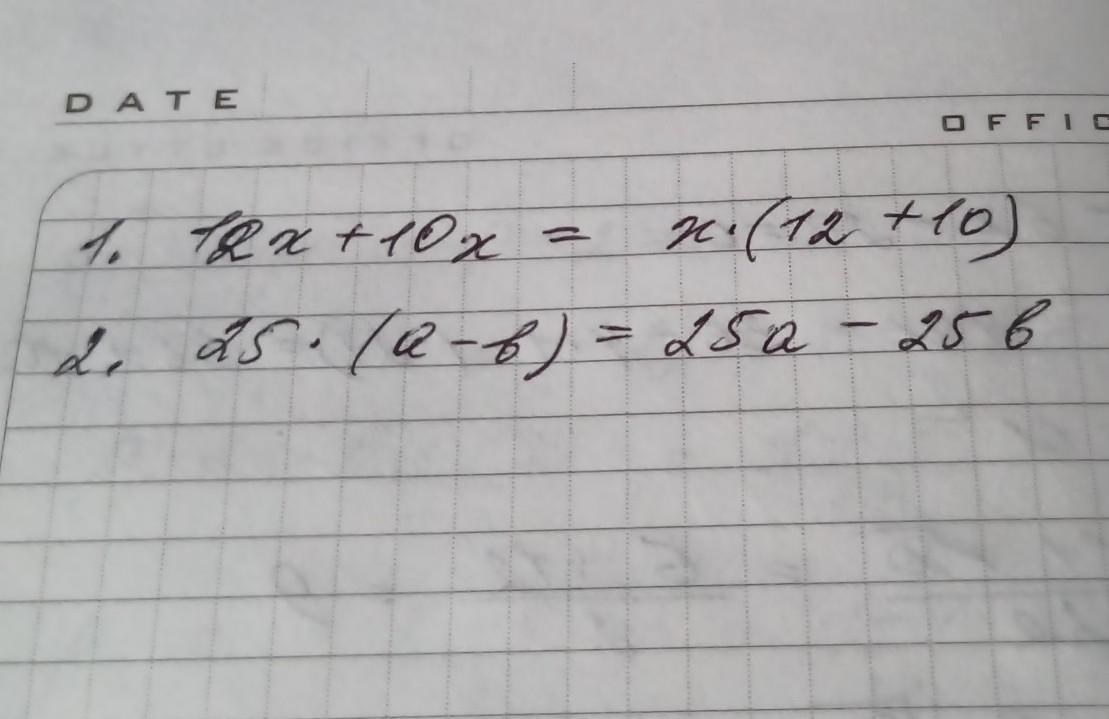 DATE
OFFIC
1. 12x + 10x = x·(12 + 10)
2. 25·(a - b) = 25a - 25b